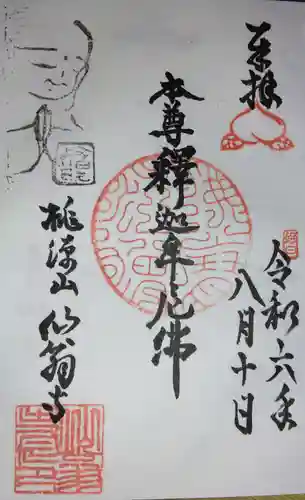 奉拝
令和六年
八月十日
本尊釋迦牟尼佛
桃源山仙翁寺